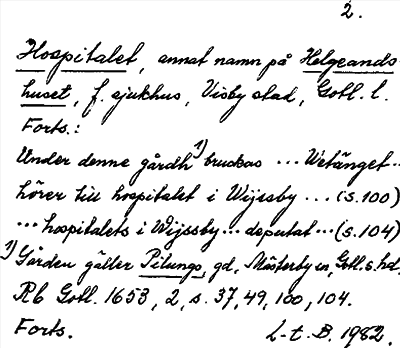 2.
Hospitalet, annat namn på Helgeands-
huset, f. sjukhus, Visby stad, Gotl. l.
Forts.:
Under denne gårdh 1) bruckas ... Wetänget ...
hörer till hospitalet i Wijssby ... (s. 100)
... hospitalets i Wijssby ... deputat ... (s. 104)
1) Gården gäller Pilungs, gd, Mästerby sn, Gotl. s. hd.
Rb Gotl. 1653, 2, s. 37, 49, 100, 104.
Forts. L-t. B. 1982.